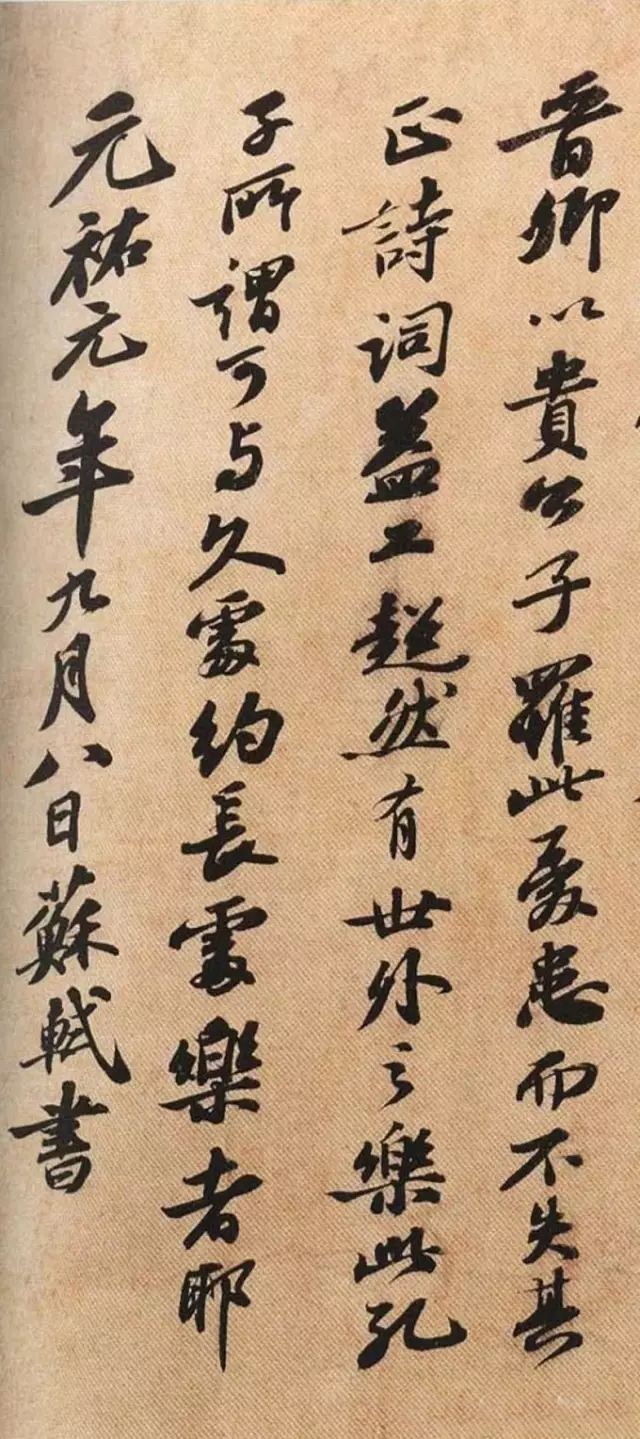 晋卿以貴公子罹此憂患而不失其
正詩詞益工超然有世外之樂此孔
子所謂可与久處約長處樂者耶
元祐元年九月八日蘇軾書